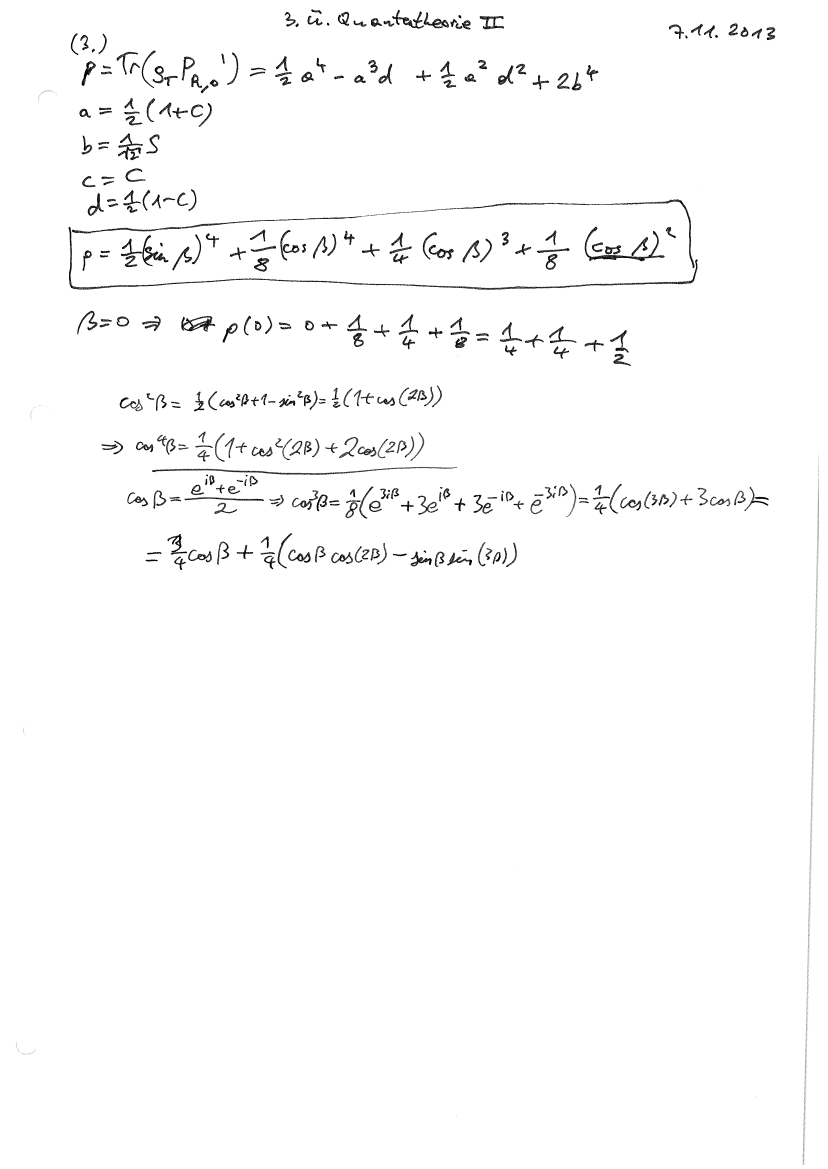 3. ü. Quantentheorie II
7.11.2013
(3.)
p = Tr(ρ_T P_{A,0}') = 1/2 a^4 - a^3 d + 1/2 a^2 d^2 + 2b^4
a = 1/2 (1+C)
b = 1/√2 S
c = C
d = 1/2 (1-C)
p = 1/2 (sin β)^4 + 1/8 (cos β)^4 + 1/4 (cos β)^3 + 1/8 (cos β)^2
β=0 ⇒ p(0) = 0 + 1/8 + 1/4 + 1/8 = 1/4 + 1/4 + 1/2
cos^2 β = 1/2 (cos^2 β + 1 - sin^2 β) = 1/2 (1 + cos(2β))
⇒ cos^4 β = 1/4 (1 + cos^2(2β) + 2cos(2β))
cos β = (e^{iβ} + e^{-iβ})/2 ⇒ cos^3 β = 1/8 (e^{3iβ} + 3e^{iβ} + 3e^{-iβ} + e^{-3iβ}) = 1/4 (cos(3β) + 3cosβ) =
= 3/4 cos β + 1/4 (cos β cos(2β) - sin β sin(2β))